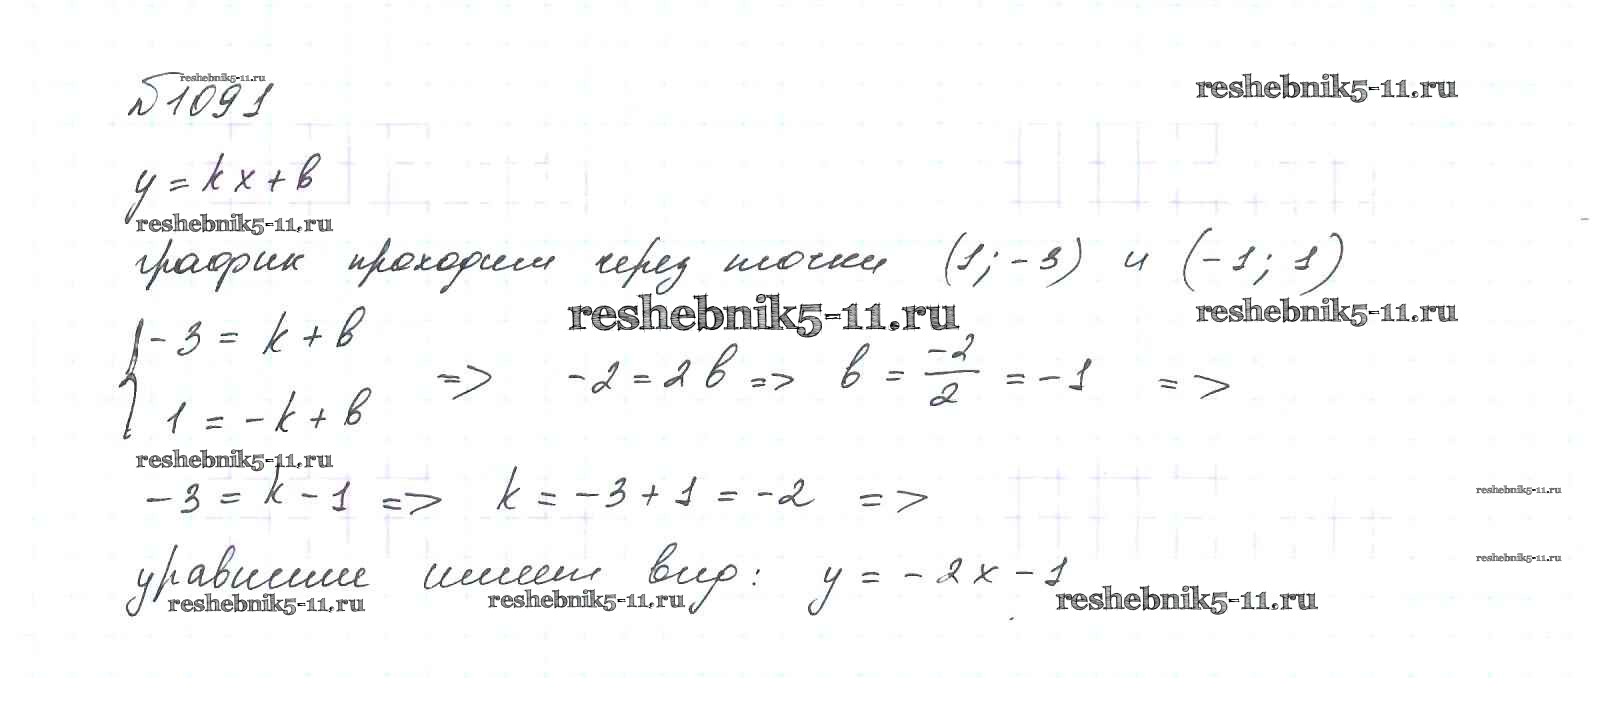 reshebnik5-11.ru
№1091
reshebnik5-11.ru
y = kx + b
reshebnik5-11.ru
график проходит через точки (1; -3) и (-1; 1)
reshebnik5-11.ru
reshebnik5-11.ru
{ -3 = k + b
1 = -k + b
=> -2 = 2b => b = -2/2 = -1 =>
reshebnik5-11.ru
-3 = k - 1 => k = -3 + 1 = -2 =>
reshebnik5-11.ru
reshebnik5-11.ru
уравнение имеет вид: y = -2x - 1
reshebnik5-11.ru
reshebnik5-11.ru
reshebnik5-11.ru